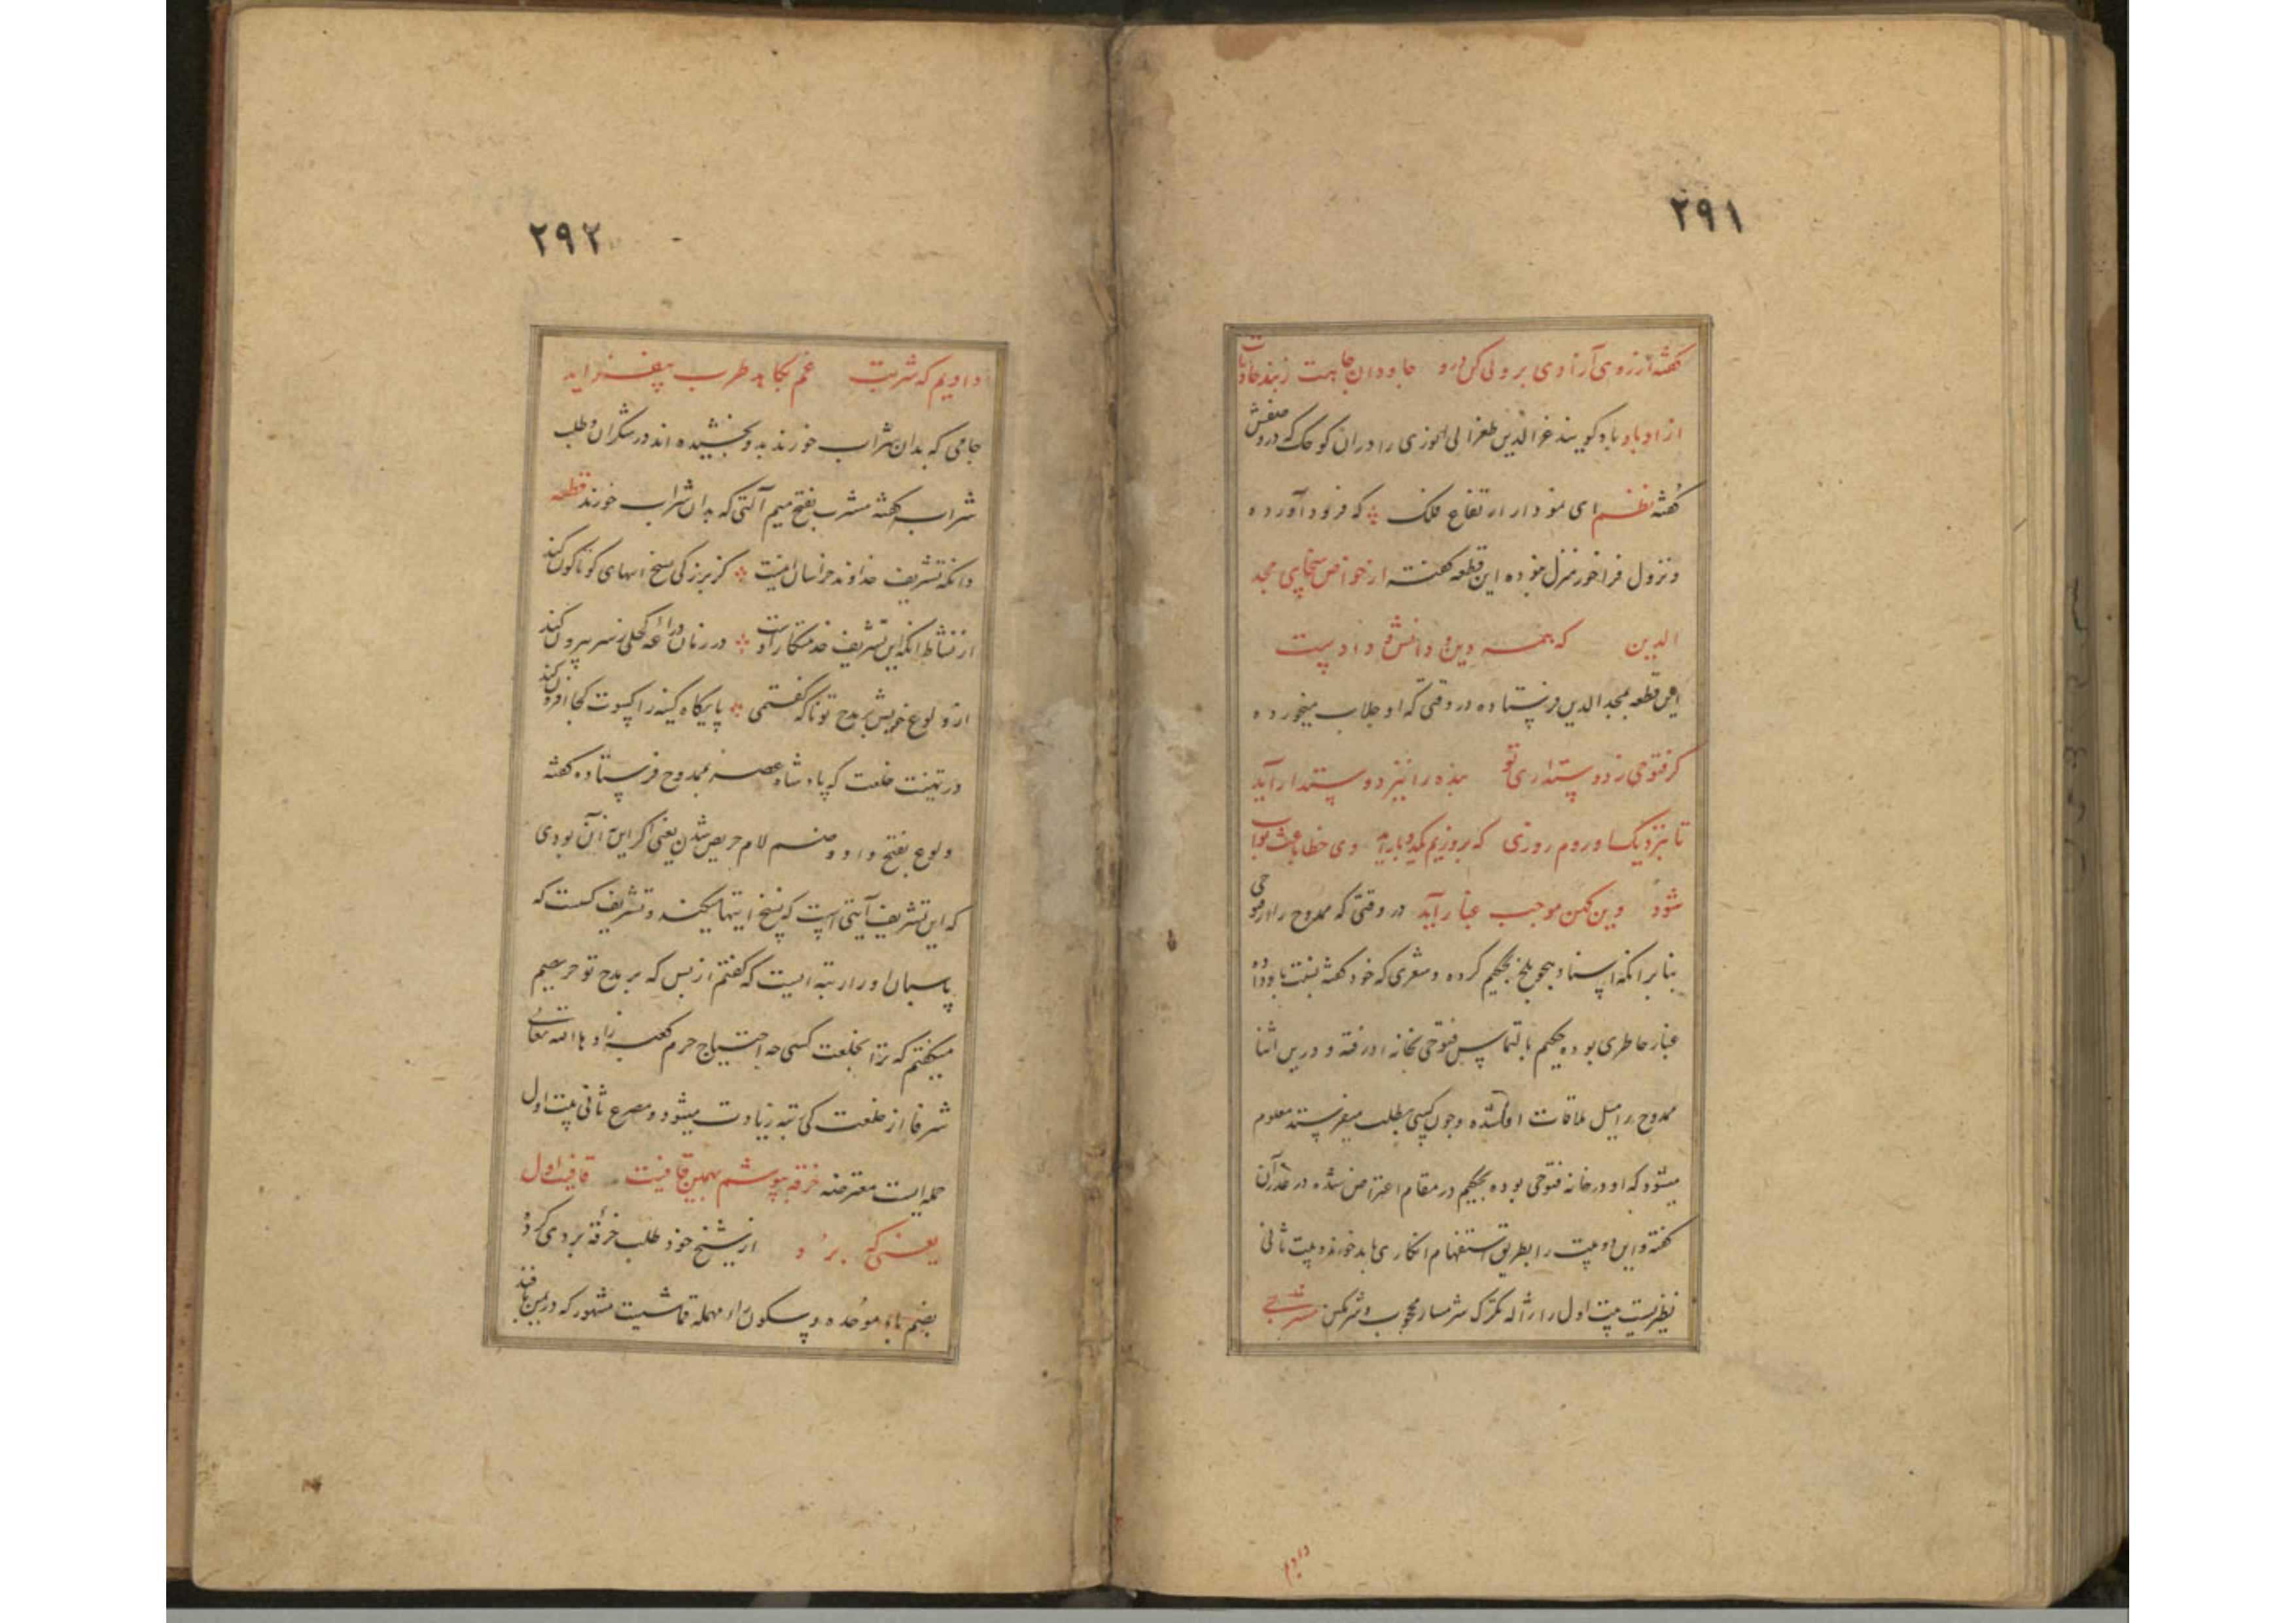 ۲۹۱
گفته از روی آزادی بر ولی کن رو جاودان جاهت زبند حادثات
ازاد باد باد کویند عز الدین طغرا لی الموزی را دران کوچک که در وصفش
گفته نظم ای نمودار ارتفاع فلک که فرود آورده
و نزول فراخور منزل نموده این قطعه گفته از خواص سخای مجد
الدین که همه دین و دانش و دادست
این قطعه بمجد الدین فرستاده در وقتی که او جلاب میخورده
کر فتوحی ز دوستداری تو بنده را نیز دوستدار آید
تا بنزدیک او روم روزی که بروزیم یکدو بار آید وی خطا باعث ثواب
شود وین کهن موجب غبار آید در وقتی که ممدوح را از فتوحی
بنابر انکه اسناد هجو بلخ بحکیم کرده و شعری که خود گفته نسبت باو داده
غبار خاطری بوده حکیم بالتماس فتوحی بخانه او رفته و درین اثنا
ممدوح را میل ملاقات او شده و چون کسی بطلب میفرستد معلوم
میشود که او در خانه فتوحی بوده بحکیم در مقام اعتراض شده در عذر آن
گفته و این دو بیت را بطریق استفهام انکاری باید خواند و بیت ثانی
نظیر بیت اول را ازاله مکن که شرمسار محجوب و شرمکن مشربی
دادیم
۲۹۲
دادیم که شربت غم بکاهد طرب بیفزاید
جامی که بدان شراب خورند بدو بخشیده اند در شکران و طلب
شراب گفته مشرب بفتح میم آلتی که بدان شراب خورند قطعه
وانکه تشریف خداوند خراسان امنیت کز بزرکی نسخ ایتهای کوناکون کند
از نشاط انکه این تشریف خدمتکار اوست در زمان دراعه کحلی ز سر بیرون کند
از ولوع خویش بر مدح تو ناکه گفتمی پایکاه کینه را کسوت کجا افزون کند
در تهنیت خلعت که پادشاه عصر بممدوح فرستاده گفته
ولوع بفتح واو و ضم لام حریص شدن یعنی اکر این آن بودی
که این تشریف آیتی است که نسخ ایتها میکند و تشریف کست که
پاسبان او را رتبه ایست که گفتم از بس که بر مدح تو حریصم
میگفتم که ترا بخلعت کسی چه احتیاج حرم کعبه زادها الله تعالی
شرفا از خلعت کی رتبه زیادت میشود و مصرع ثانی بیت اول
جمله ایست معترضه خرقه بپوشم بهمین قافیت قافیت اول
یعنی که برد و از شیخ خود طلب خرقه بردی کرده
بضم باء موحده و سکون راء مهمله قماشیست مشهور که در یمن بافند